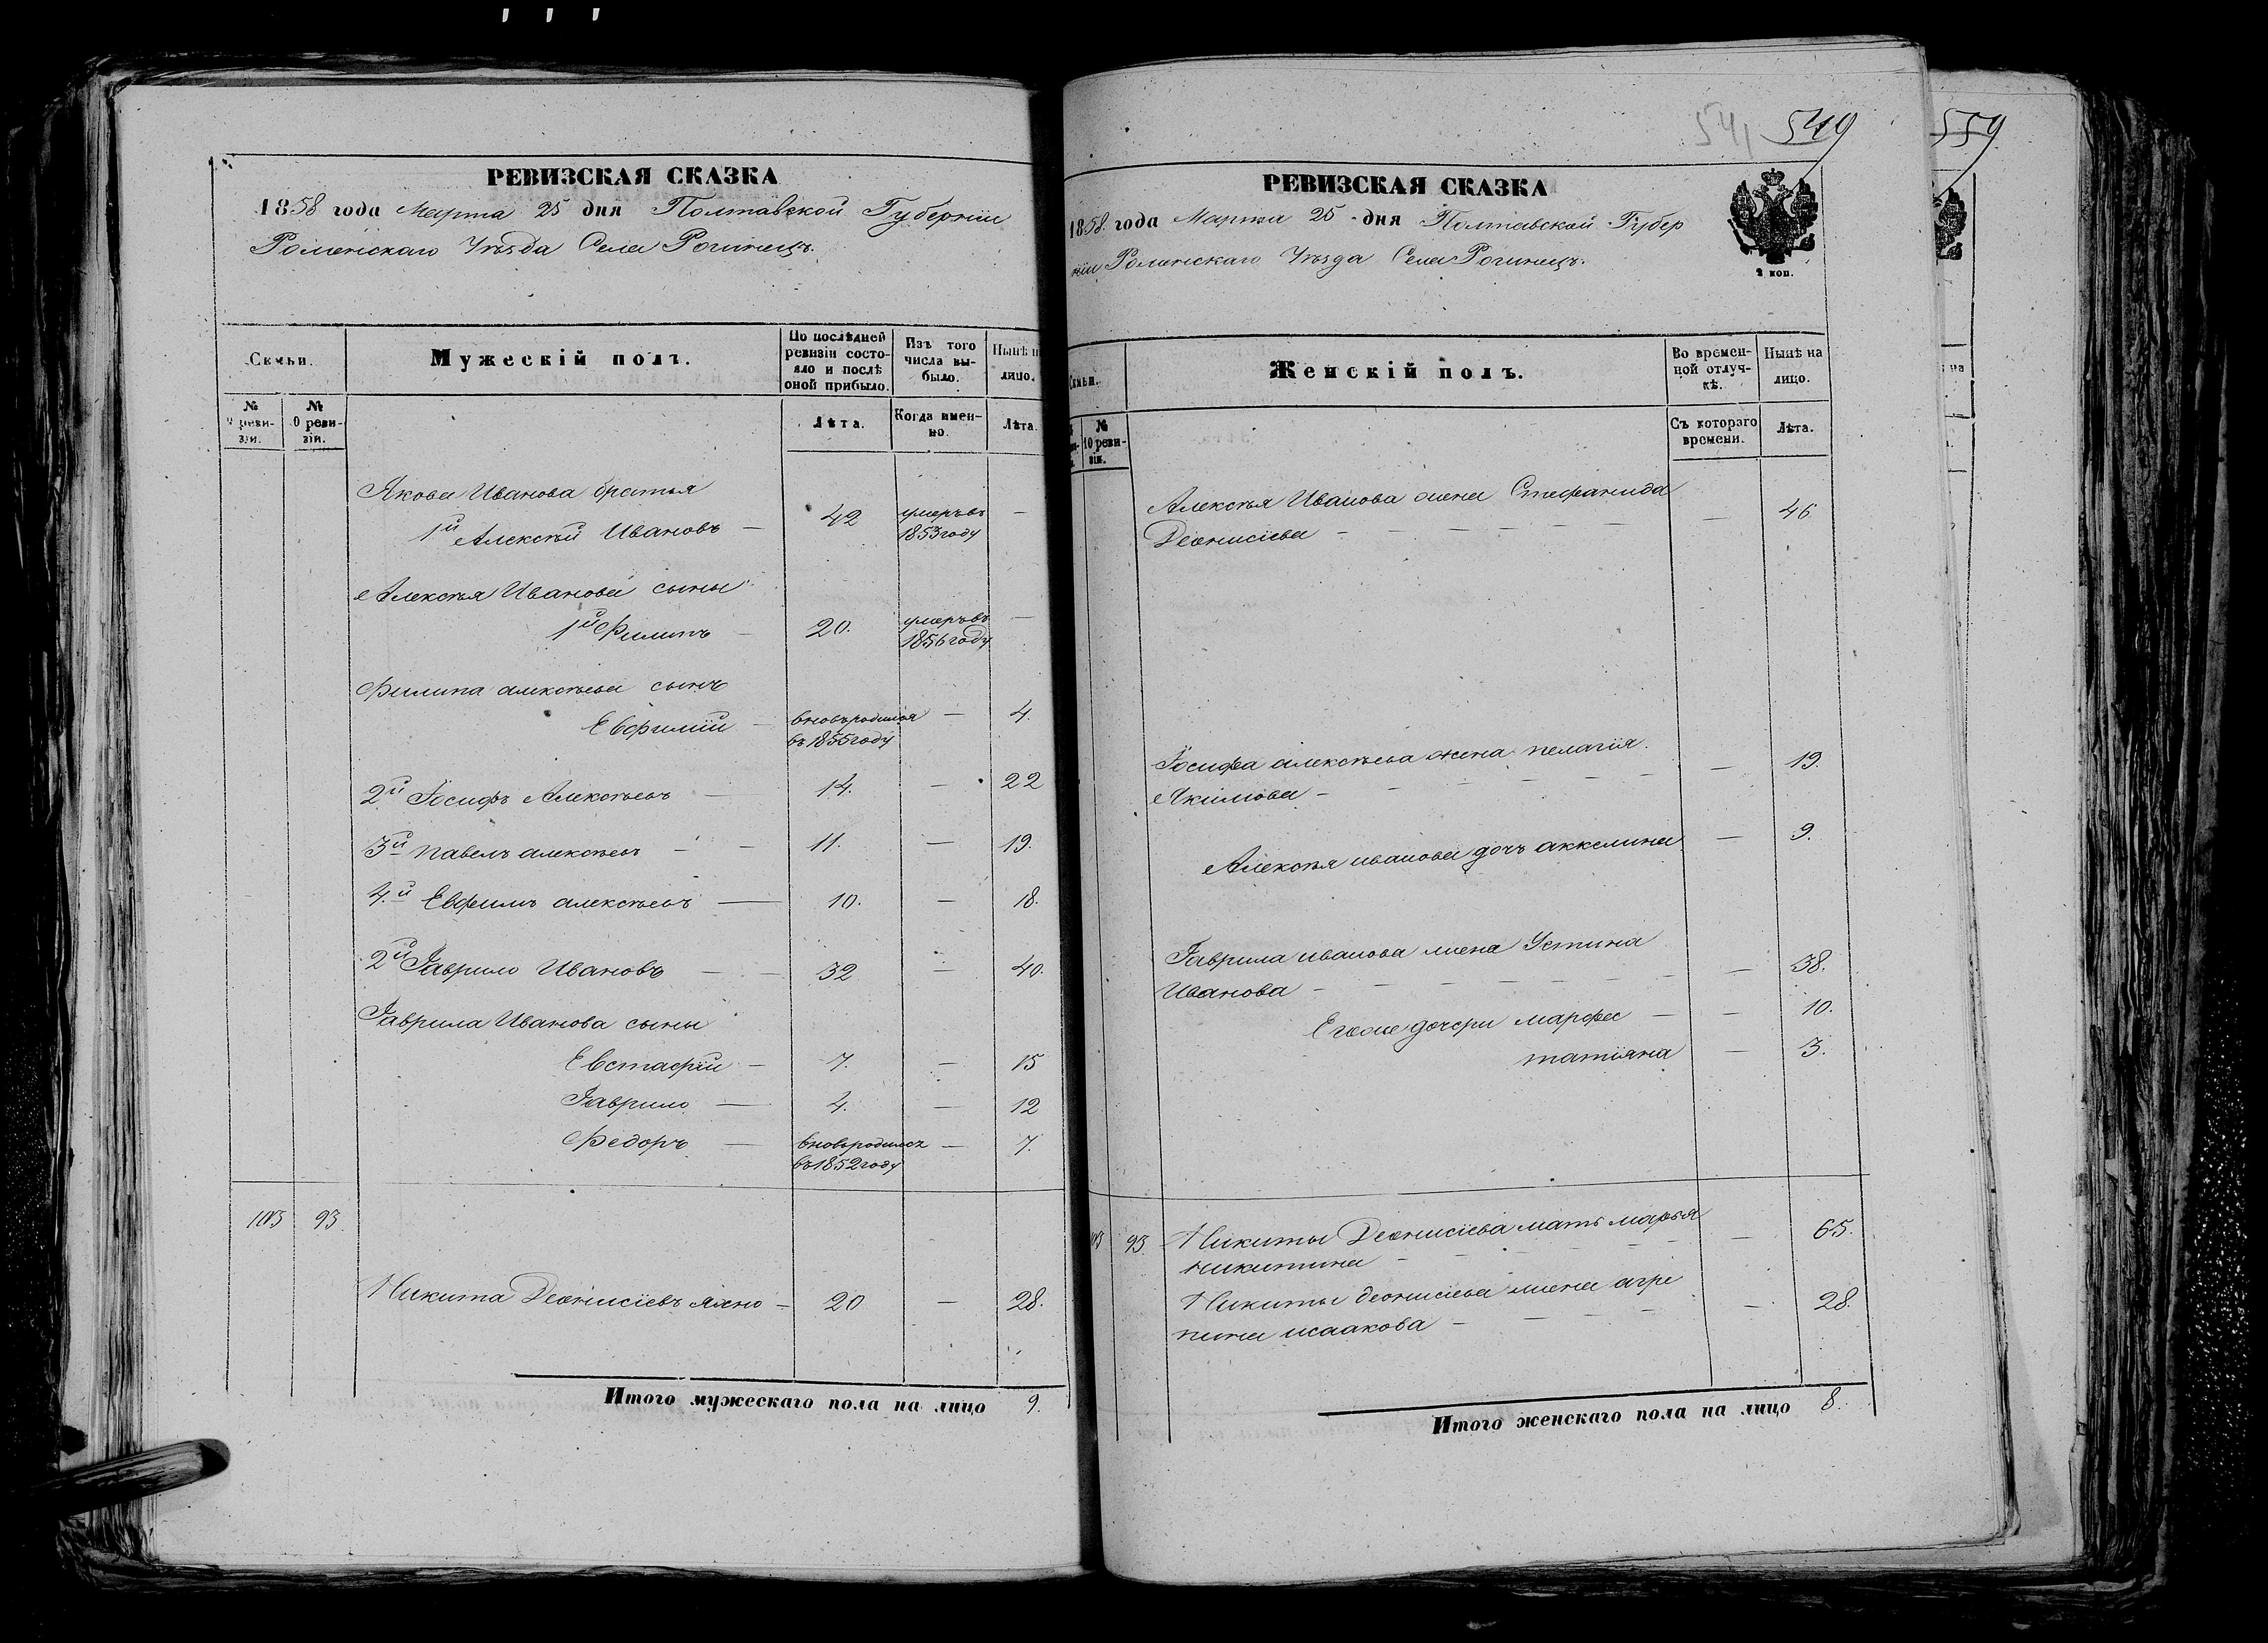 РЕВИЗСКАЯ СКАЗКА
1858 года Марта 25 дня Полтавской Губернiи
Роменскаго Уѣзда Села Рогинецъ.
Семьи.
Мужескiй полъ.
По послѣдней ревизiи состояло и послѣ оной прибыло.
Изъ того числа выбыло.
Нынѣ н лицо.
№ 9 ревизiи.
№ 0 ревизiи.
Лѣта.
Когда именно.
Лѣта.
Якова Иванова братья
1й Алексѣй Ивановъ — 42 умеръ въ 1853 году —
Алексѣя Иванова сыны
1й Филипъ — 20. умеръ въ 1856 году —
Филипа алексѣева сынъ
Евфимiй — вновь родился въ 1855 году — 4.
2й Iосифъ Алексѣевъ — 14. — 22
3й павелъ алексѣевъ — — 11. — 19.
4й Евфимъ алексѣевъ — 10. — 18.
2й Гаврило Ивановъ — — 32 — 40.
Гаврила Иванова сыны
Евстафiй — 7. — 15
Гаврило — 4. — 12
Федоръ — вновь родился въ 1852 году — 7.
103 93.
Никита Деонисiевъ Яхно — 20 — 28.
Итого мужескаго пола на лицо 9.
541 549
РЕВИЗСКАЯ СКАЗКА
1858. года Марта 25 дня Полтавской Губер
нiи Роменскаго Уѣзда Села Рогинецъ.
2 коп.
Семьи.
Женскiй полъ.
Во временной отлучкѣ.
Нынѣ на лицо.
№ 10 ревизiи.
Съ котораго времени.
Лѣта.
Алексѣя Иванова жена Стефанида
Деонисiева — — — — — — — 46
Iосифа алексѣева жена пелагiя
Якимова — — — — — — — 19.
Алексѣя иванова дочь аккелина — 9.
Гаврила иванова жена Устина
Иванова — — — — — — — 38.
Егоже дочери марфа — — 10.
татiяна — 3.
93 Никиты Деонисiева мать марья
никитина — — — — — — 65.
Никиты деонисiева жена агре
пина исаакова — — — — — 28.
Итого женскаго пола на лицо 8.
559
на